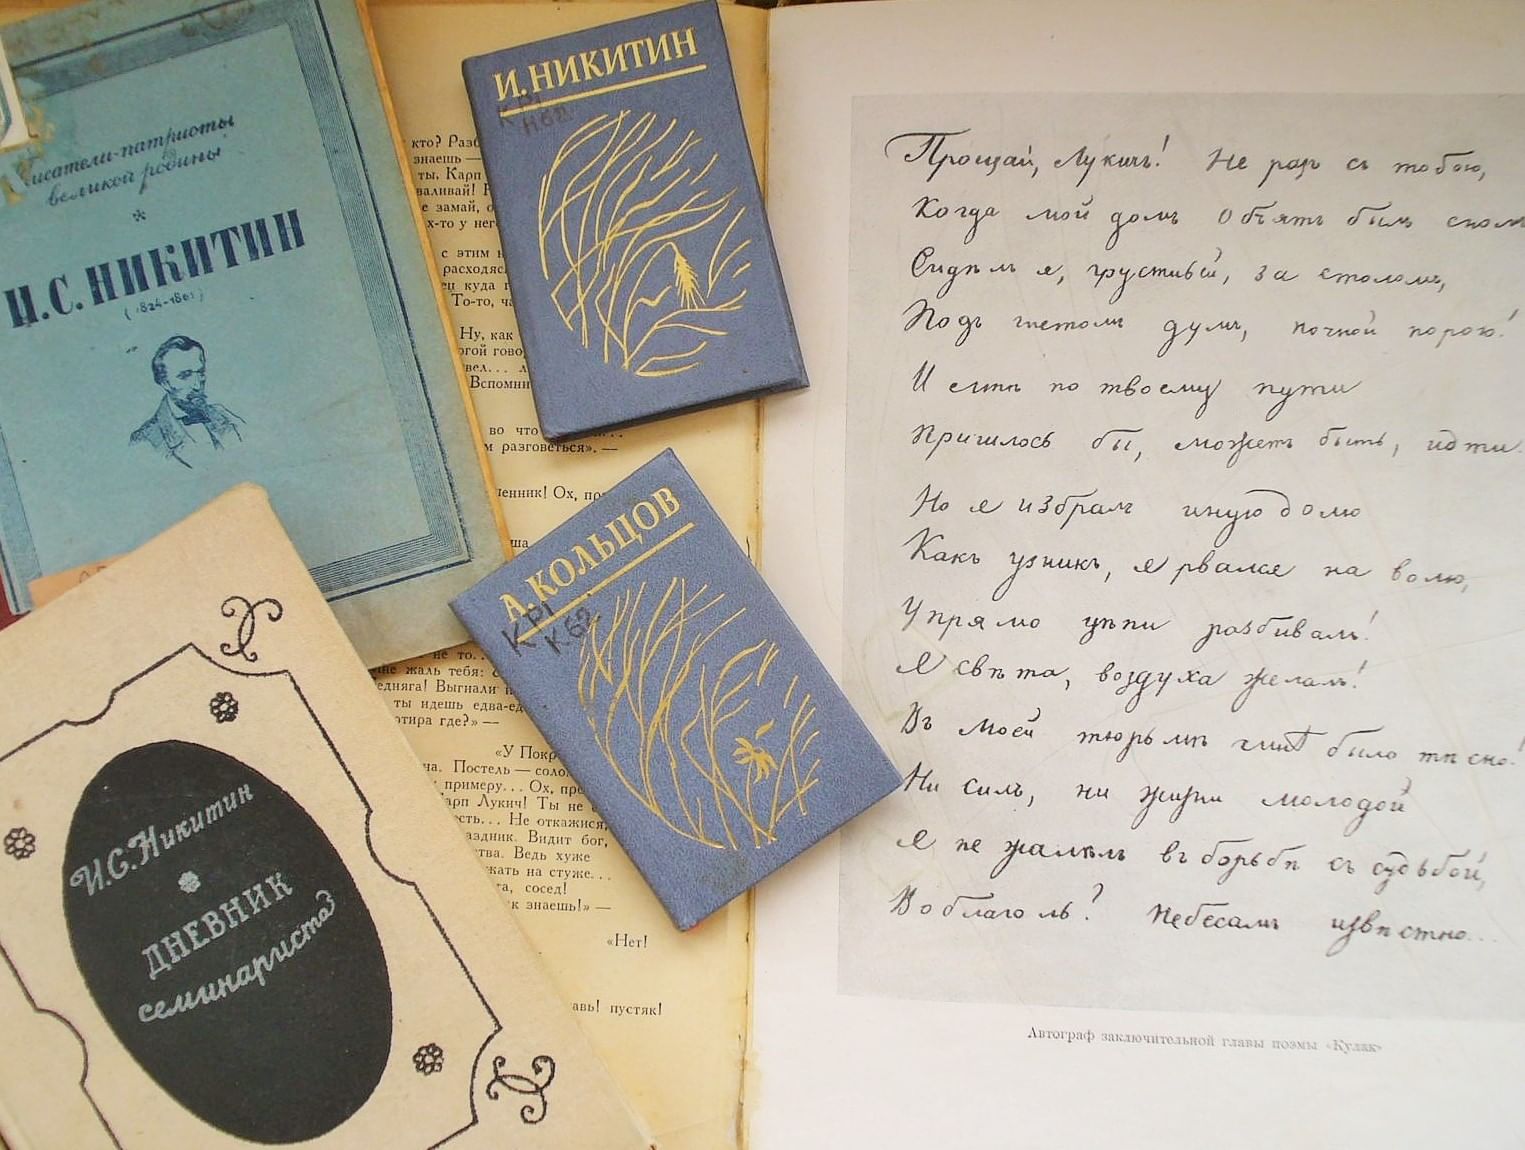 Писатели-патриоты
великой родины
И.С. НИКИТИН
(1824-1861)
И. НИКИТИН
КР1
Н62
А. КОЛЬЦОВ
КР1
К62
И.С. Никитин
ДНЕВНИК
семинариста
кто? Разб
знаешь —
ты, Карп
валивай!
е замай, о
х-то у нег
с этим н
расходяс
ец куда
То-то, ча
Ну, как
гой гово
вел... л
Вспомни
во что
м разговеться». —
ленник! Ох,
ша
не то..
не жаль тебя:
едняга! Выгнали
ты идешь едва-ед
ртира где?» —
«У Покр
на. Постель — соло
примеру... Ох, пре
арп Лукич! Ты не
есть... Не откажися,
аздник. Видит бог,
ства. Ведь хуже
жать на стуже...
та, сосед!
к знаешь!» —
«Нет!
авь! пустяк!
Прощай, Лукичъ! Не разъ съ тобою,
Когда мой домъ объятъ былъ сномъ
Сидѣлъ я, грустный, за столомъ,
Подъ гнетомъ думъ, ночной порою!
И мнѣ по твоему пути
Пришлось бы, можетъ быть, идти
Но я избралъ иную долю
Какъ узникъ, я рвался на волю,
Упрямо цѣпи разбивалъ!
Я свѣта, воздуха желалъ!
Въ моей тюрьмѣ мнѣ было тѣсно!
Ни силъ, ни жизни молодой
Я не жалѣлъ въ борьбѣ съ судьбой,
Во благо ль? Небесамъ извѣстно...
Автограф заключительной главы поэмы «Кулак»